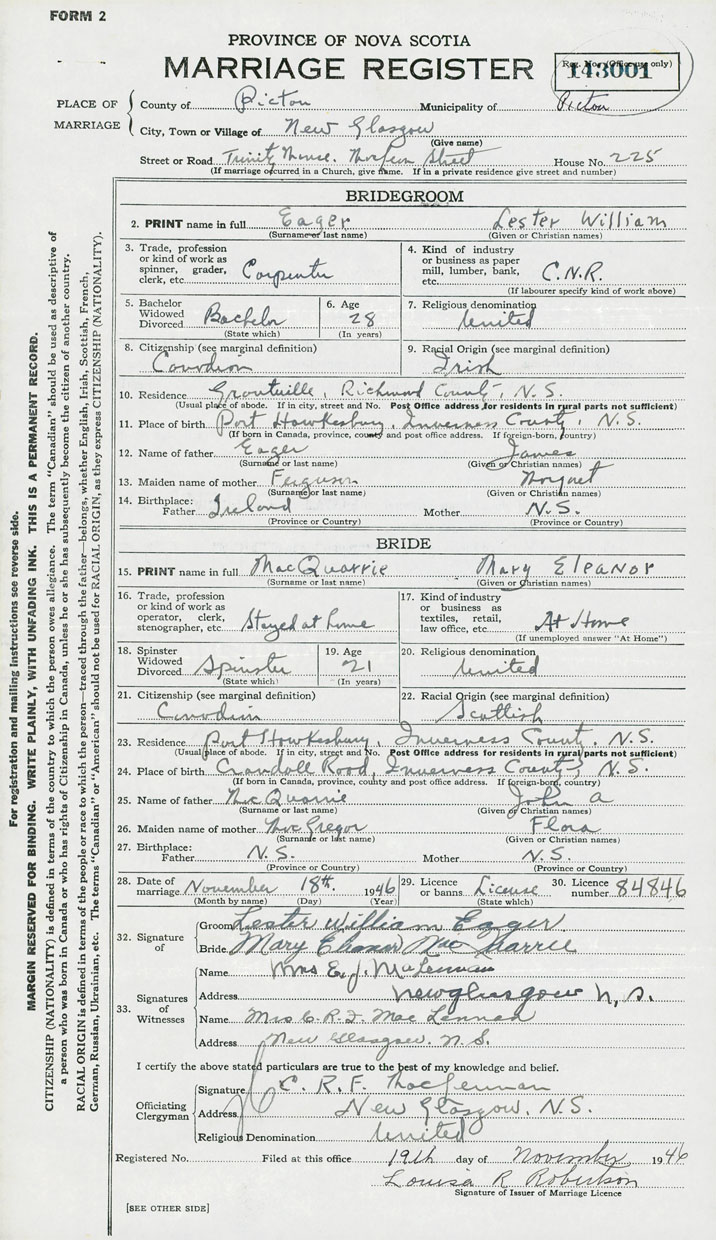 FORM 2
PROVINCE OF NOVA SCOTIA
MARRIAGE REGISTER
Reg. No. (Office use only)
143001
PLACE OF MARRIAGE
County of Pictou Municipality of Pictou
City, Town or Village of New Glasgow
(Give name)
Street or Road Trinity Manse. Street House No. 225
(If marriage occurred in a Church, give name. If in a private residence give street and number)
BRIDEGROOM
2. PRINT name in full Eager Lester William
(Surname or last name) (Given or Christian names)
3. Trade, profession or kind of work as spinner, grader, clerk, etc. Carpenter
4. Kind of industry or business as paper mill, lumber, bank, etc. C.N.R.
(If labourer specify kind of work above)
5. Bachelor Widowed Divorced Bachelor
(State which)
6. Age 28
(In years)
7. Religious denomination United
8. Citizenship (see marginal definition) Canadian
9. Racial Origin (see marginal definition) Irish
10. Residence Richmond County, N.S.
(Usual place of abode. If in city, street and No. Post Office address for residents in rural parts not sufficient)
11. Place of birth Port Hawkesbury, Inverness County, N.S.
(If born in Canada, province, county and post office address. If foreign-born, country)
12. Name of father Eager James
(Surname or last name) (Given or Christian names)
13. Maiden name of mother Ferguson Margaret
(Surname or last name) (Given or Christian names)
14. Birthplace: Father Ireland Mother N.S.
(Province or Country) (Province or Country)
BRIDE
15. PRINT name in full MacQuarrie Mary Eleanor
(Surname or last name) (Given or Christian names)
16. Trade, profession or kind of work as operator, clerk, stenographer, etc. Stayed at home
17. Kind of industry or business as textiles, retail, law office, etc. At Home
(If unemployed answer "At Home")
18. Spinster Widowed Divorced Spinster
(State which)
19. Age 21
(In years)
20. Religious denomination United
21. Citizenship (see marginal definition) Canadian
22. Racial Origin (see marginal definition) Scottish
23. Residence Port Hawkesbury, Inverness County, N.S.
(Usual place of abode. If in city, street and No. Post Office address for residents in rural parts not sufficient)
24. Place of birth Crandall Road, Inverness County, N.S.
(If born in Canada, province, county and post office address. If foreign-born, country)
25. Name of father MacQuarrie John A
(Surname or last name) (Given or Christian names)
26. Maiden name of mother MacGregor Flora
(Surname or last name) (Given or Christian names)
27. Birthplace: Father N.S. Mother N.S.
(Province or Country) (Province or Country)
28. Date of marriage November 18th. 1946
(Month by name) (Day) (Year)
29. Licence or banns License
(State which)
30. Licence number 84846
32. Signature of
Groom Lester William Eager
Bride Mary Eleanor MacQuarrie
33. Signatures of Witnesses
Name Mrs E. J. McLennan
Address New Glasgow N.S.
Name Mrs C. R. F. MacLennan
Address New Glasgow. N.S.
I certify the above stated particulars are true to the best of my knowledge and belief.
Officiating Clergyman
Signature C. R. F. MacLennan
Address New Glasgow, N.S.
Religious Denomination United
Registered No. Filed at this office 19th day of November 1946
Louisa R Robertson
Signature of Issuer of Marriage Licence
[SEE OTHER SIDE]
For registration and mailing instructions see reverse side.
MARGIN RESERVED FOR BINDING. WRITE PLAINLY, WITH UNFADING INK. THIS IS A PERMANENT RECORD.
CITIZENSHIP (NATIONALITY) is defined in terms of the country to which the person owes allegiance. The term "Canadian" should be used as descriptive of
a person who was born in Canada or who has rights of Citizenship in Canada, unless he or she has subsequently become the citizen of another country.
RACIAL ORIGIN is defined in terms of the people or race to which the person—traced through the father—belongs, whether English, Irish, Scottish, French,
German, Russian, Ukrainian, etc. The terms "Canadian" or "American" should not be used for RACIAL ORIGIN, as they express CITIZENSHIP (NATIONALITY).